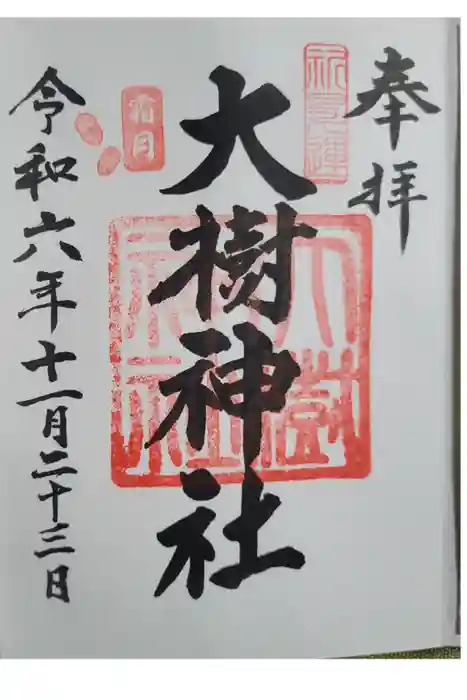 奉拝
大樹神社
大樹神社
霜月
令和六年十一月二十三日